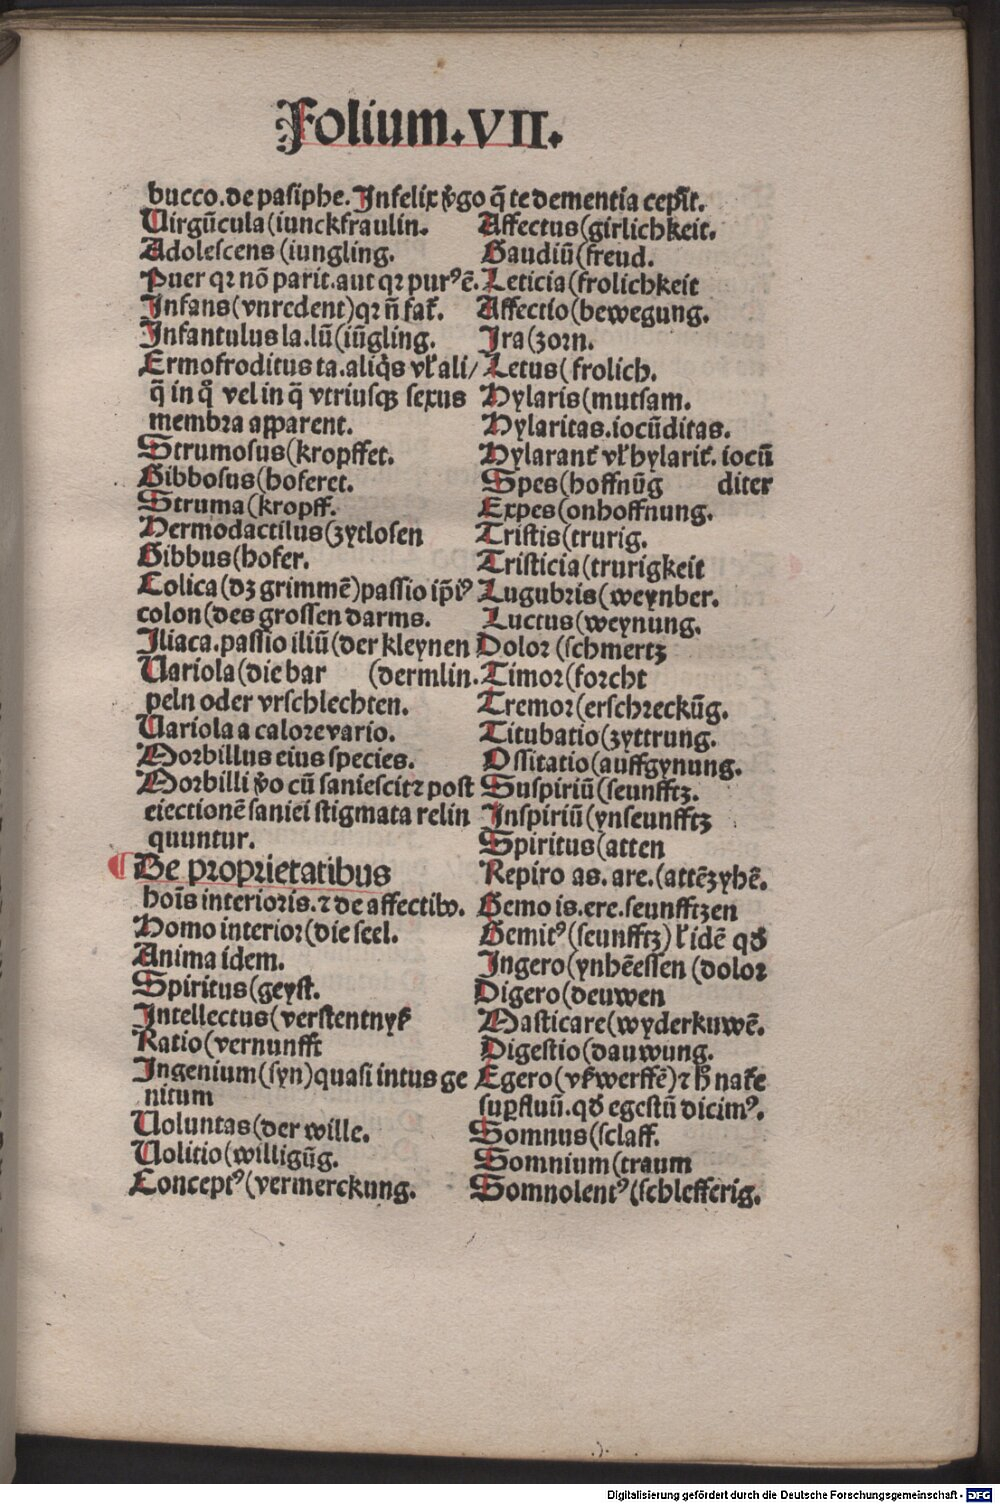 Folium.VII.
bucco.de pasiphe.Infelix v̾go q̄ te dementia cepīt.
Virgūcula(iunckfraulin.
Adolescens(iungling.
Puer qꝛ nō parit.aut qꝛ purꝰē.
Infans(vnredent)qꝛ n̄ fat̄.
Infantulus la.lū(iūgling.
Ermofroditus ta.aliq̄s vł ali/
q̄ in q̊ vel in q̄ vtriusqꝫ sexus
membra apparent.
Strumosus(kropffet.
Gibbosus(hoferet.
Struma(kropff.
Hermodactilus(zytlosen
Gibbus(hofer.
Colica(dz grimmē)passio ip̄iꝰ
colon(des grossen darms.
Iliaca.passio iliū(der kleynen
Variola(die bar (dermlin.
peln oder vrschlechten.
Variola a calore vario.
Morbillus eius species.
Morbilli v̊o cū saniescitꝛ post
eiectionē saniei stigmata relin
quuntur.
¶ De proprietatibus
hoīs interioris.⁊ de affectibꝰ.
Homo interior(die seel.
Anima idem.
Spiritus(geyst.
Intellectus(verstentnyß
Ratio(vernunfft
Ingenium(syn)quasi intus ge
nitum
Voluntas(der wille.
Volitio(willigūg.
Conceptꝰ(vermerckung.
Affectus(girlichkeit.
Gaudiū(freud.
Leticia(frolichkeit
Affectio(bewegung.
Ira(zorn.
Letus(frolich.
Hylaris(mutsam.
Hylaritas.iocūditas.
Hylarant̄ vł hylarit̄.iocū
Spes(hoffnūg diter
Expes(onhoffnung.
Tristis(trurig.
Tristicia(trurigkeit
Lugubris(weynber.
Luctus(weynung.
Dolor(schmertz
Timor(forcht
Tremor(erschreckūg.
Titubatio(zyttrung.
Ossitatio(auffgynung.
Suspiriū(seunfftz.
Inspiriū(ynseunfftz
Spiritus(atten
Repiro as.are.(attēzyhē.
Gemo is.ere.seunfftzen
Gemitꝰ(seunfftz)ł idē qd̄
Ingero(ynhēessen (dolor
Digero(deuwen
Masticare(wyderkuwē.
Digestio(dauwung.
Egero(vßwerffē)⁊ h̄ nat̄e
suꝑfluū.qd̄ egestū dicimꝰ.
Somnus(sclaff.
Somnium(traum
Somnolentꝰ(schlefferig.
Digitalisierung gefördert durch die Deutsche Forschungsgemeinschaft - DFG